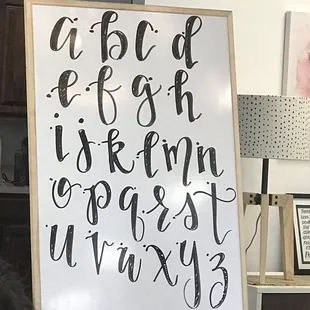 a b c d
e f g h
i j k l m n
o p q r s t
u v w x y z